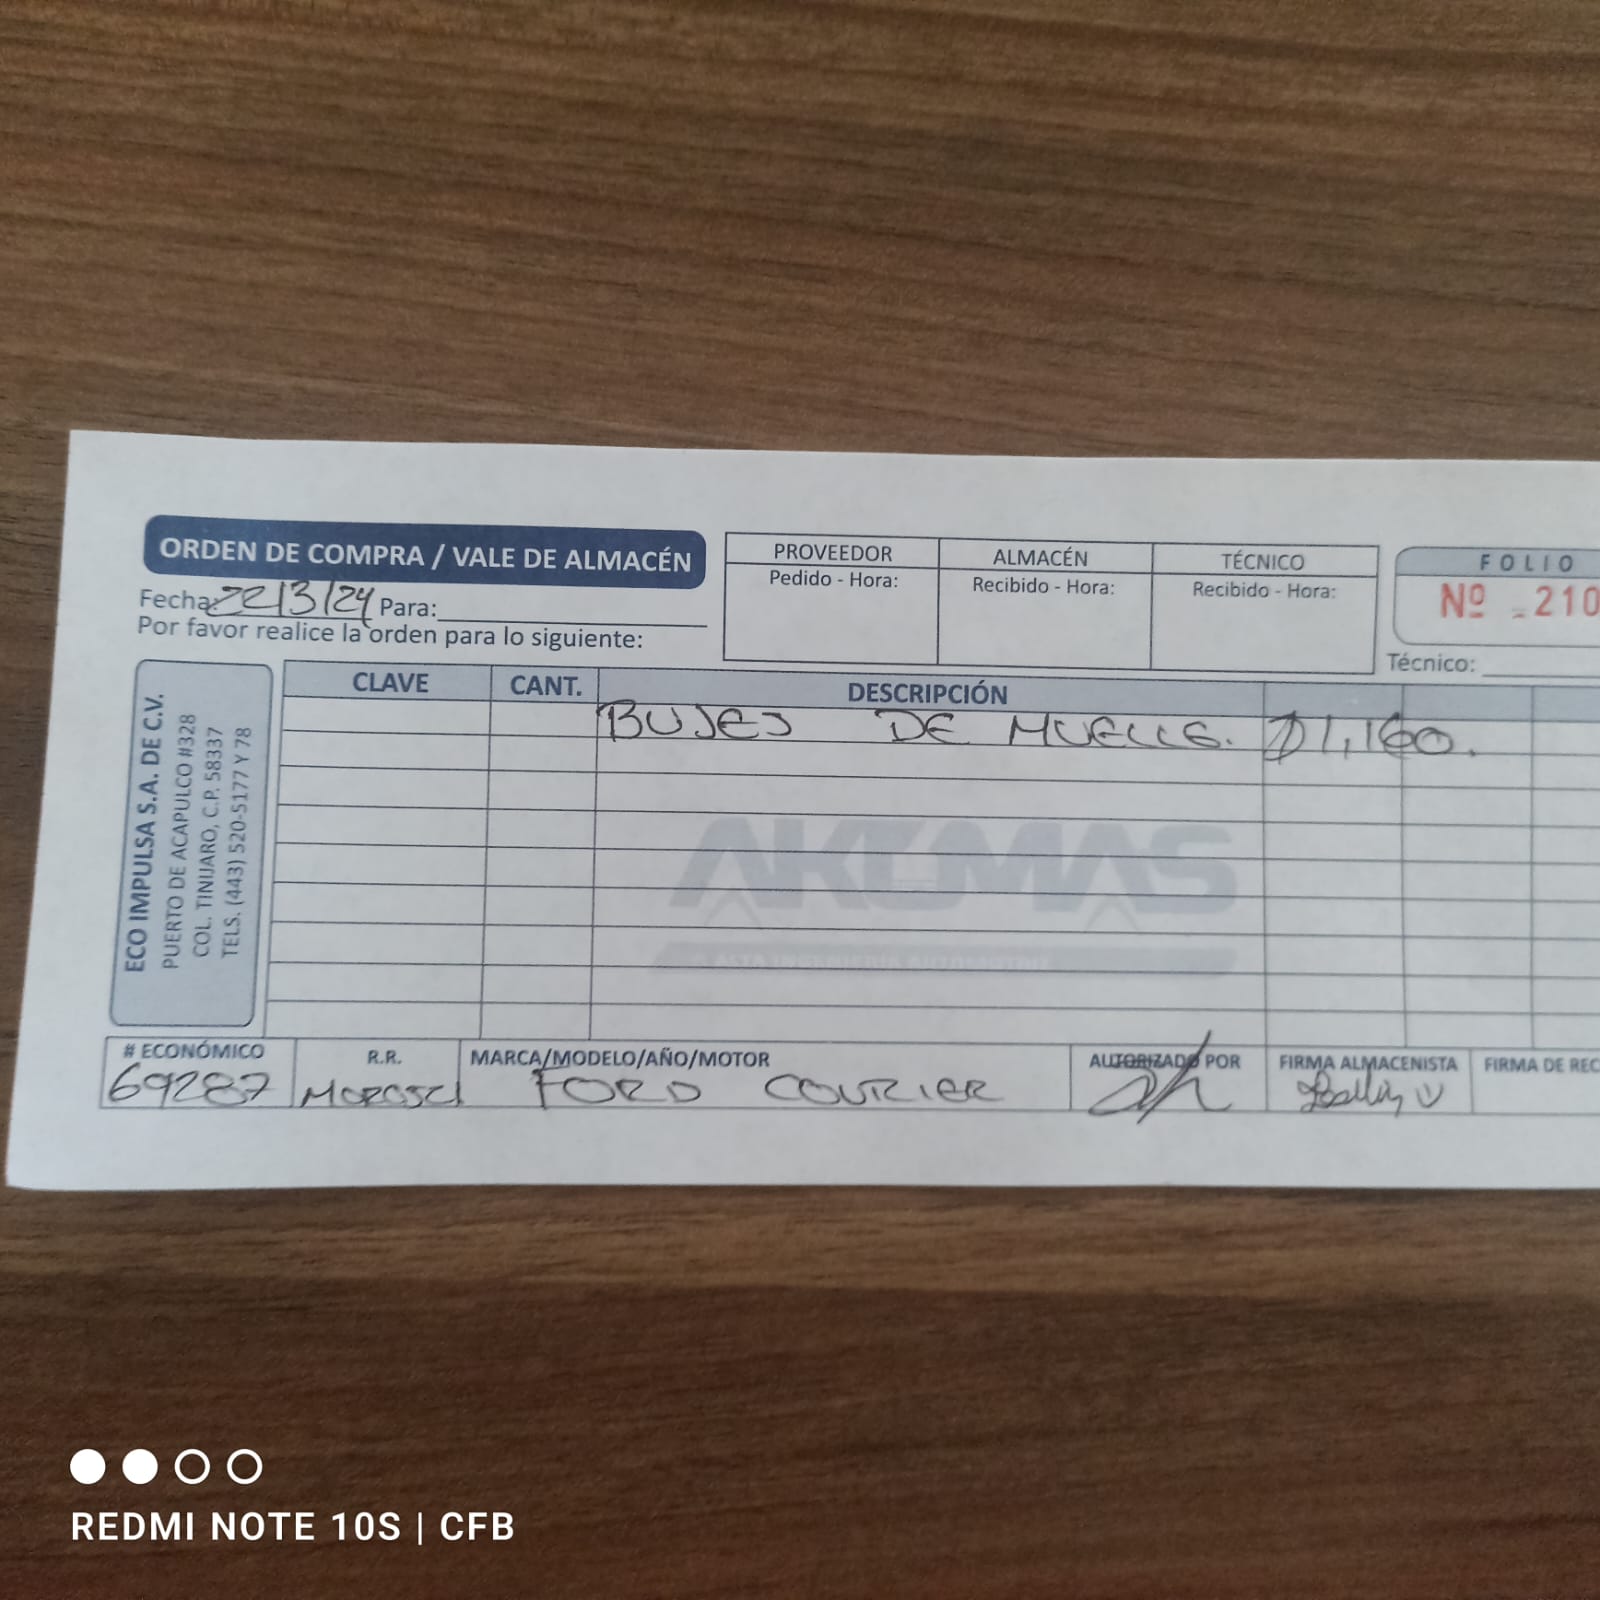 ORDEN DE COMPRA / VALE DE ALMACÉN
Fecha: 22/3/24 Para:
Por favor realice la orden para lo siguiente:
PROVEEDOR ALMACÉN TÉCNICO
Pedido - Hora: Recibido - Hora: Recibido - Hora:
FOLIO
Nº 210
Técnico:
ECO IMPULSA S.A. DE C.V.
PUERTO DE ACAPULCO #328
COL. TINIJARO, C.P. 58337
TELS. (443) 520-5177 Y 78
CLAVE CANT. DESCRIPCIÓN
BUJES DE MUELLE. $1,160.
AKUMAS
# ECONÓMICO R.R. MARCA/MODELO/AÑO/MOTOR AUTORIZADO POR FIRMA ALMACENISTA FIRMA DE REC
69287 FORD COURIER
REDMI NOTE 10S | CFB